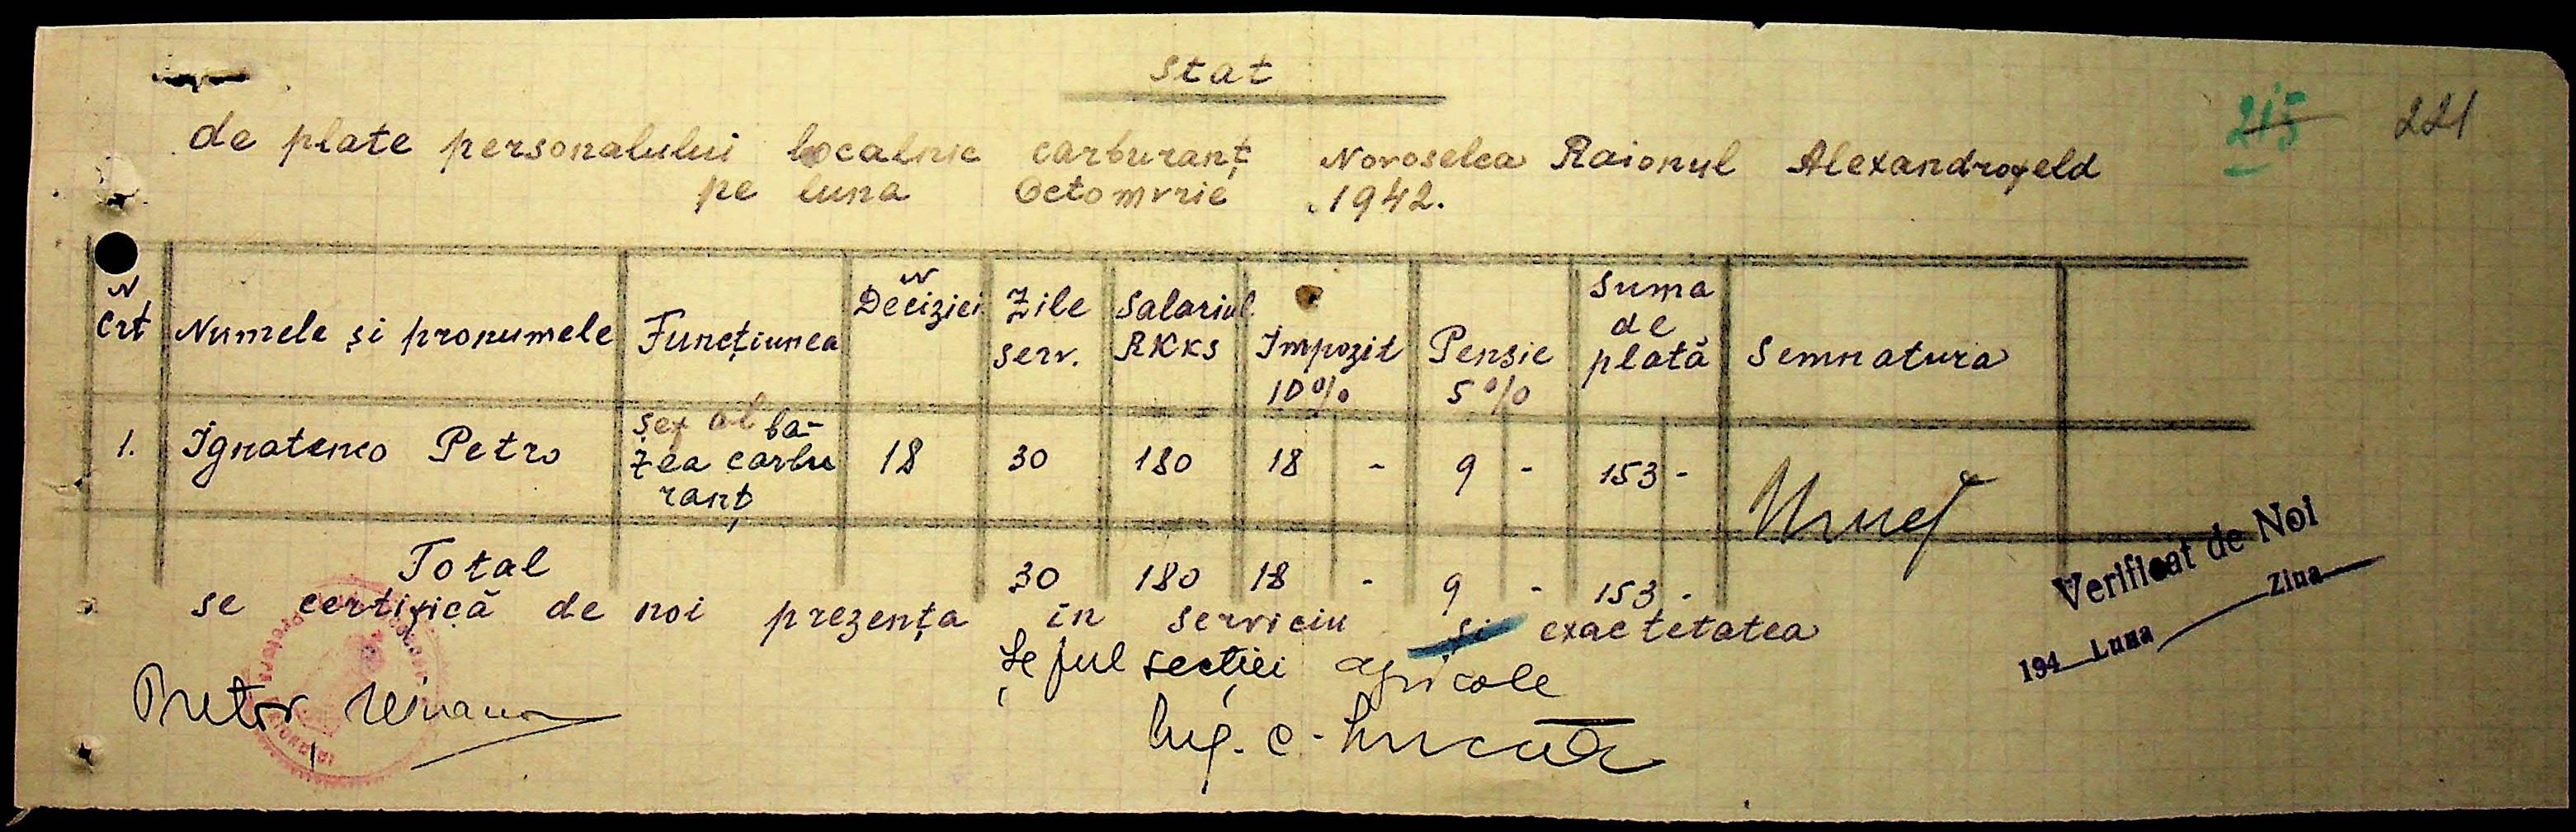 Stat
215 221
de plate personalului localnic carburanț Novoselca Raionul Alexandrofeld
pe luna Octomvrie 1942.
N Crt Numele și pronumele Funcțiunea N Deciziei Zile serv. Salariul RKKS Impozit 10% Pensie 5% Suma de plată Semnatura
1. Ignatenco Petro șef al ba-zea carbu ranț 18 30 180 18 - 9 - 153 -
Total 30 180 18 - 9 - 153 -
se certifică de noi prezența în serviciu și exactetatea
Șeful secției agricole
Pretor
Ing. C.
Verificat de Noi
194 Luna Ziua